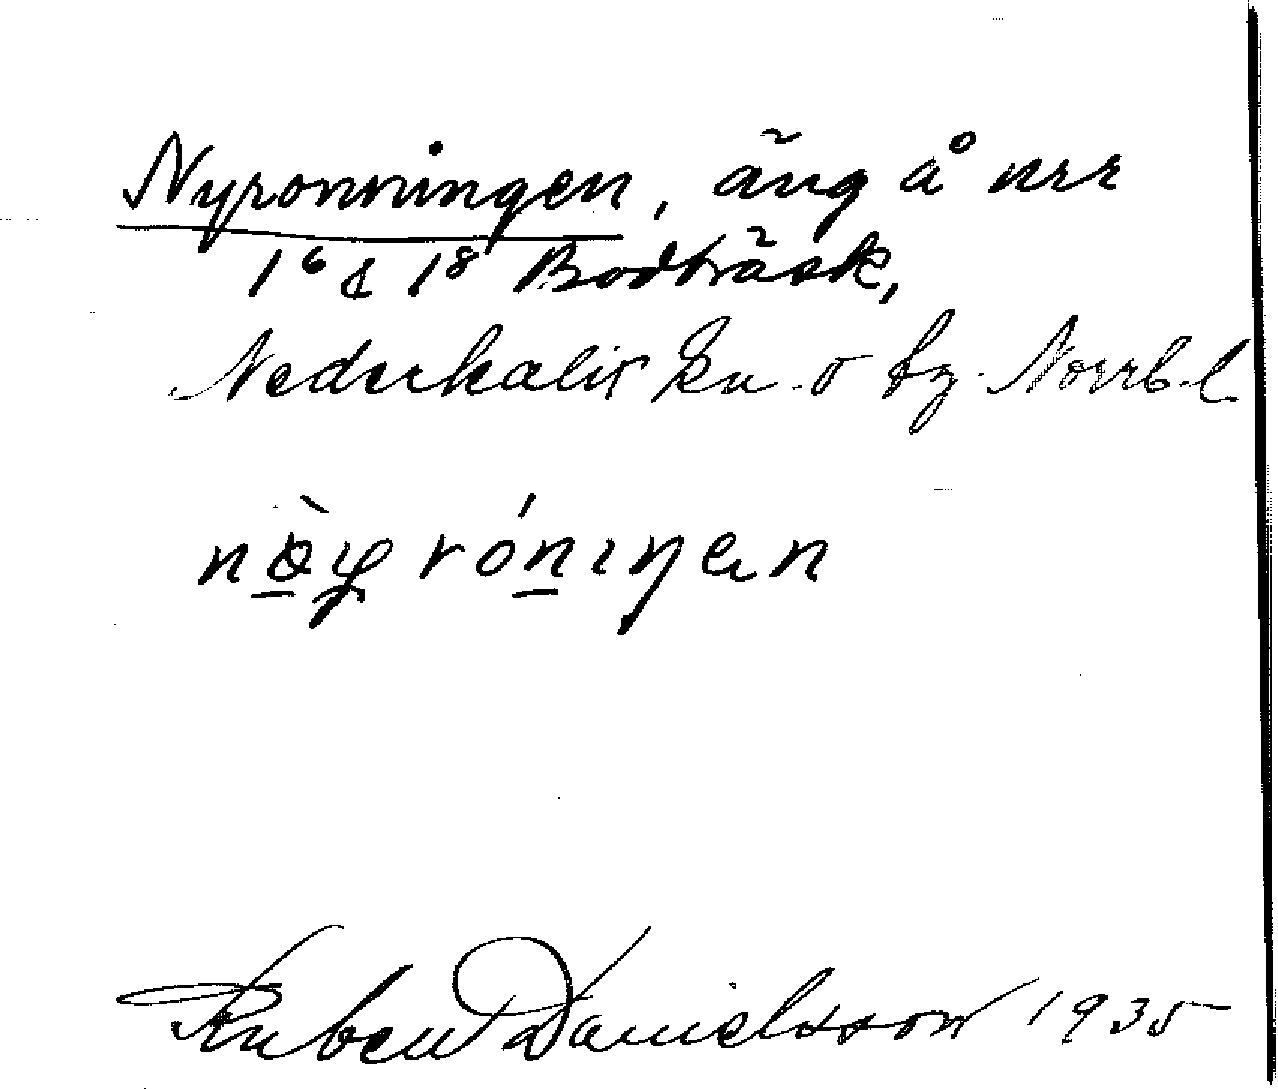 Nyronningen, äng å nrr
1⁶ & 1⁸ Bodträsk,
Nederkalix sn o fg. Norrb.l.
Ruben Danielsson 1935